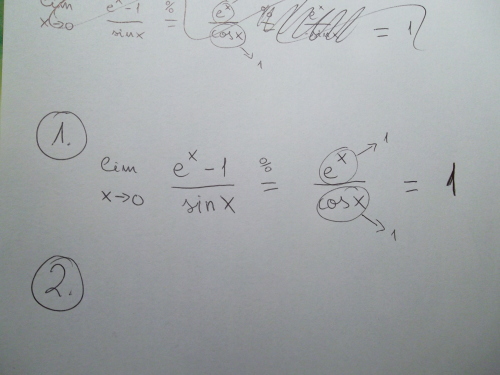 lim x→0 e^x-1/sinx % = e^x/cosx = 1
1
1.
lim x→0 e^x-1/sinx % = e^x/cosx = 1
1
1
2.